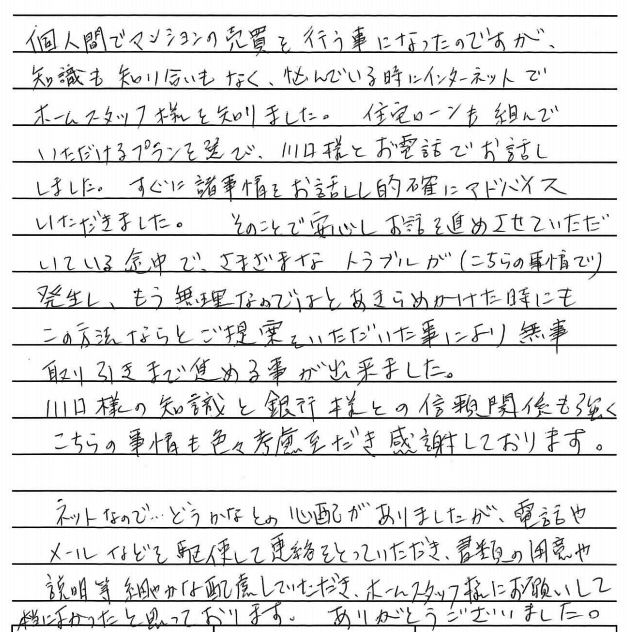 個人間でマンションの売買を行う事になったのですが、
知識も知り合いもなく、悩んでいる時にインターネットで
ホームスタッフ様を知りました。 住宅ローンも組んで
いただけるプランを選び、川口様とお電話でお話し
しました。 すぐに諸事情をお話しし的確にアドバイス
いただきました。 そのことで安心しお話を進めさせていただ
いている途中で、さまざまな トラブルが(こちらの事情で)
発生し、もう無理なのではとあきらめかけた時にも
この方法ならとご提案をいただいた事により無事
取り引きまで進める事が出来ました。
川口様の知識と銀行様との信頼関係も強く
こちらの事情も色々考慮頂き感謝しております。
ネットなので…どうかなとの心配がありましたが、電話や
メールなどを駆使して連絡をとっていただき、書類の用意や
説明等細やかな配慮していただき、ホームスタッフ様にお願いして
本当によかったと思っております。 ありがとうございました。